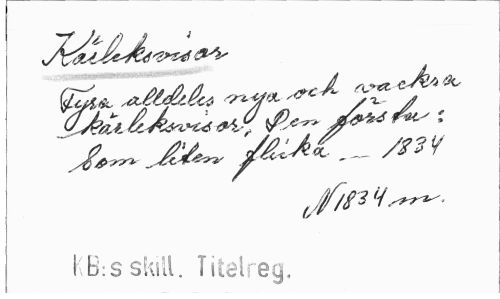 Kärleksvisor
Fyra alldeles nya och vackra
kärleksvisor. Den första:
Som liten flicka _ 1834
N 1834 m.
KB:s skill. Titelreg.